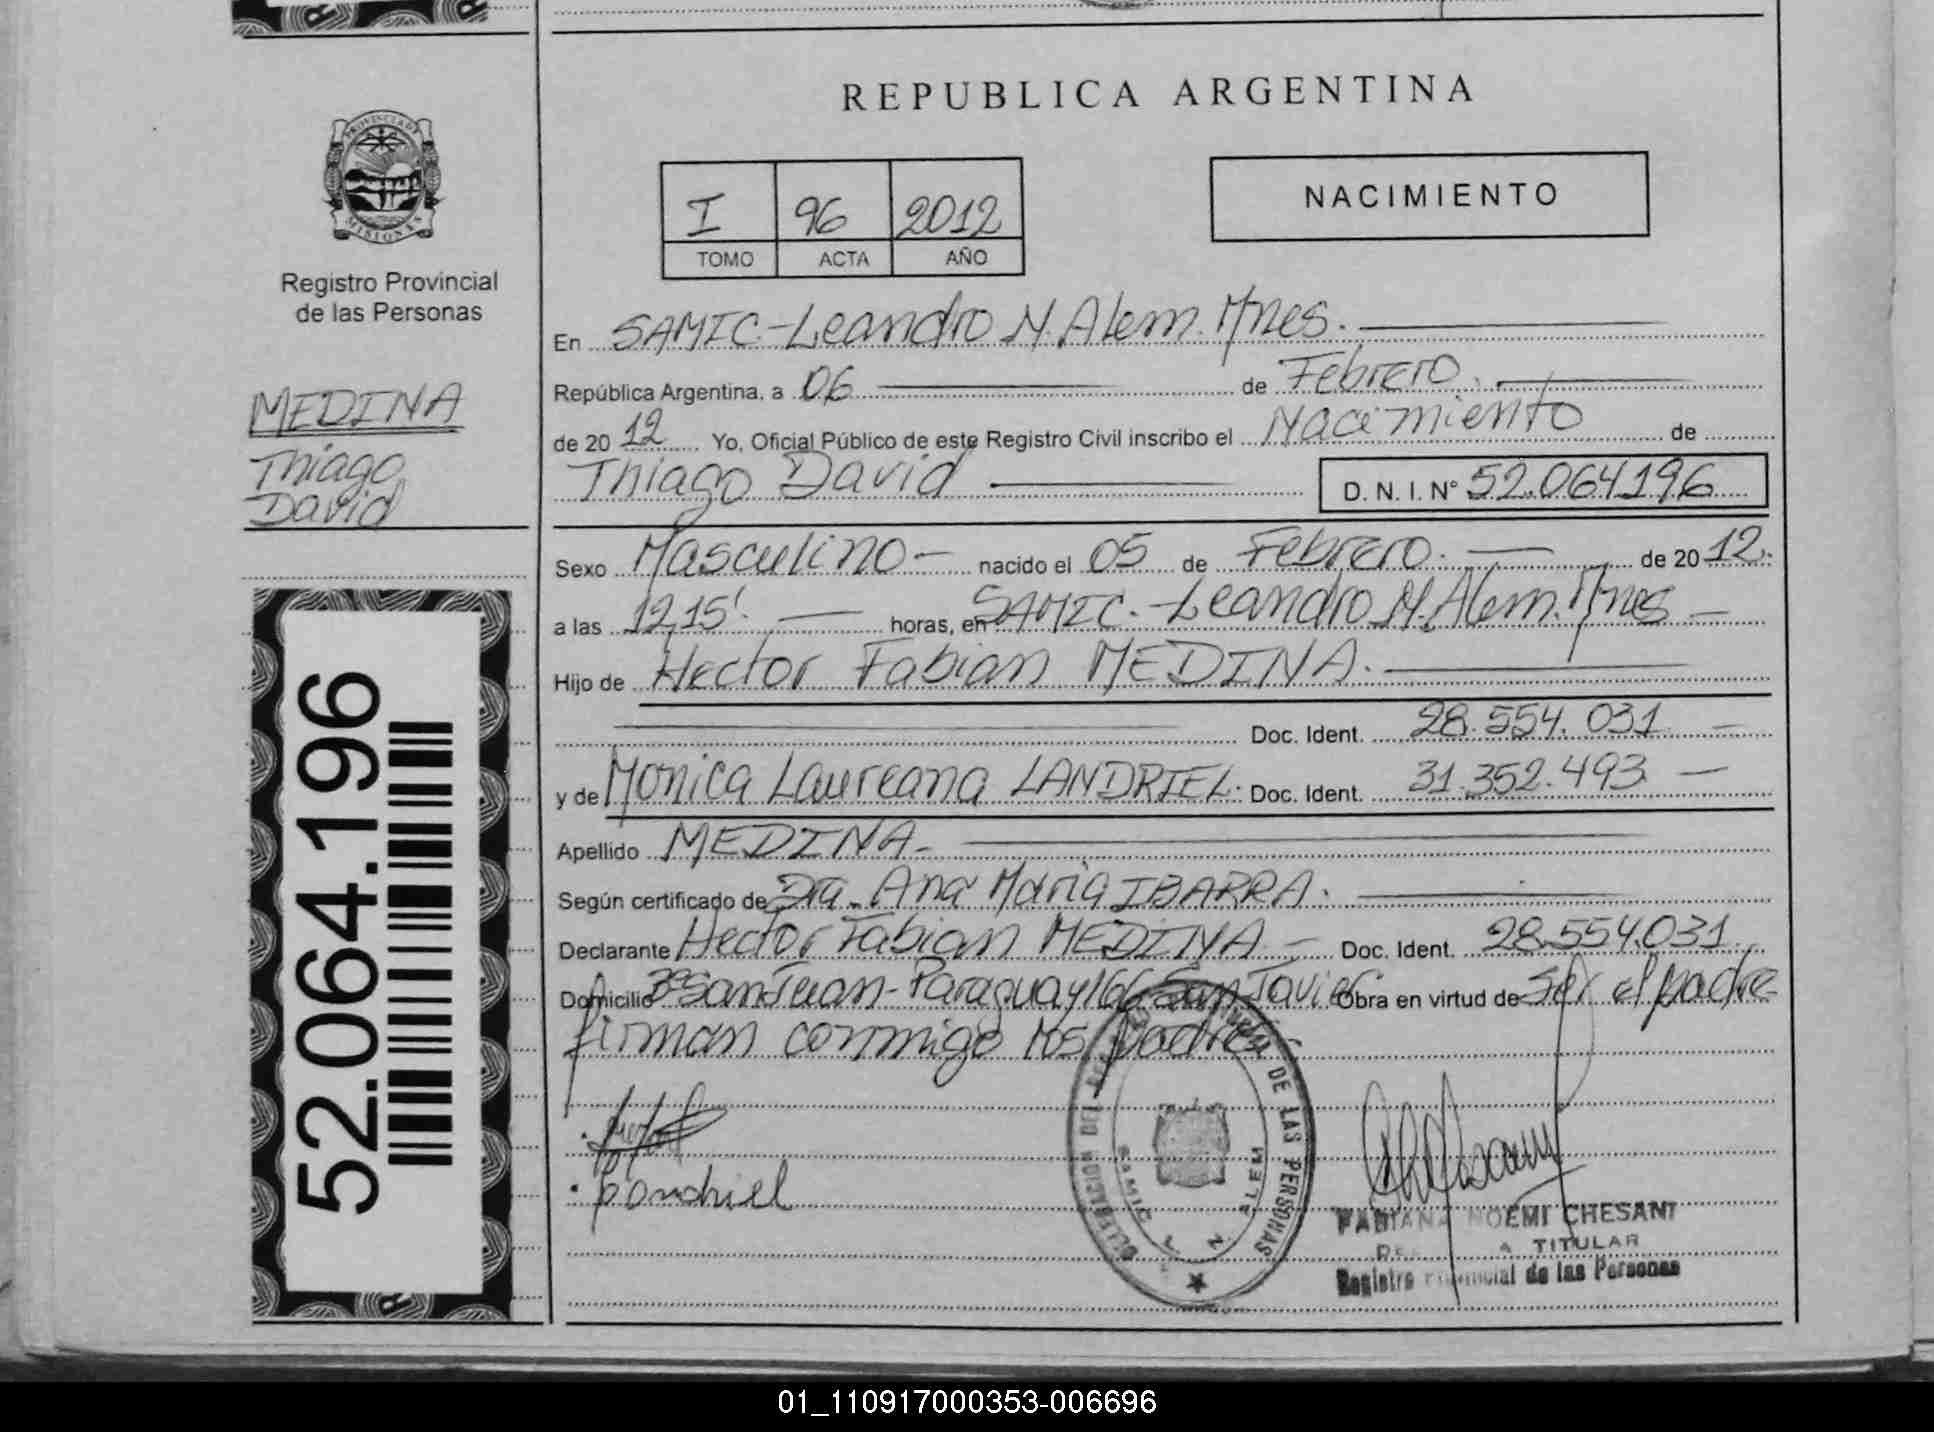 REPUBLICA ARGENTINA
PROVINCIA DE
MISIONES
Registro Provincial
de las Personas
I 96 2012
TOMO ACTA AÑO
NACIMIENTO
MEDINA
Thiago
David
52.064.196
En SAMIC-Leandro N. Alem. Mnes.
República Argentina, a 06 de Febrero.
de 2012 Yo, Oficial Público de este Registro Civil inscribo el Nacimiento de
Thiago David D. N. I. N° 52.064196
Sexo Masculino nacido el 05 de Febrero. de 2012.
a las 12,15'. horas, en SAMIC.-Leandro N. Alem. Mnes
Hijo de Hector Fabian MEDINA.
Doc. Ident. 28.554.031
y de Monica Laureana LANDRIEL. Doc. Ident. 31.352.493
Apellido MEDINA
Según certificado de Dra. Ana Maria IBARRA.
Declarante Hector Fabian MEDINA Doc. Ident. 28.554.031
Domicilio San Juan-Paraguay 166 San Javier Obra en virtud de ser el padre
firman conmigo los padres
Landriel
DELEGACION DEL DE LAS PERSONAS
SAMIC L. N. ALEM
FABIANA NOEMI CHESANI
TITULAR
Registro Provincial de las Personas
01_110917000353-006696